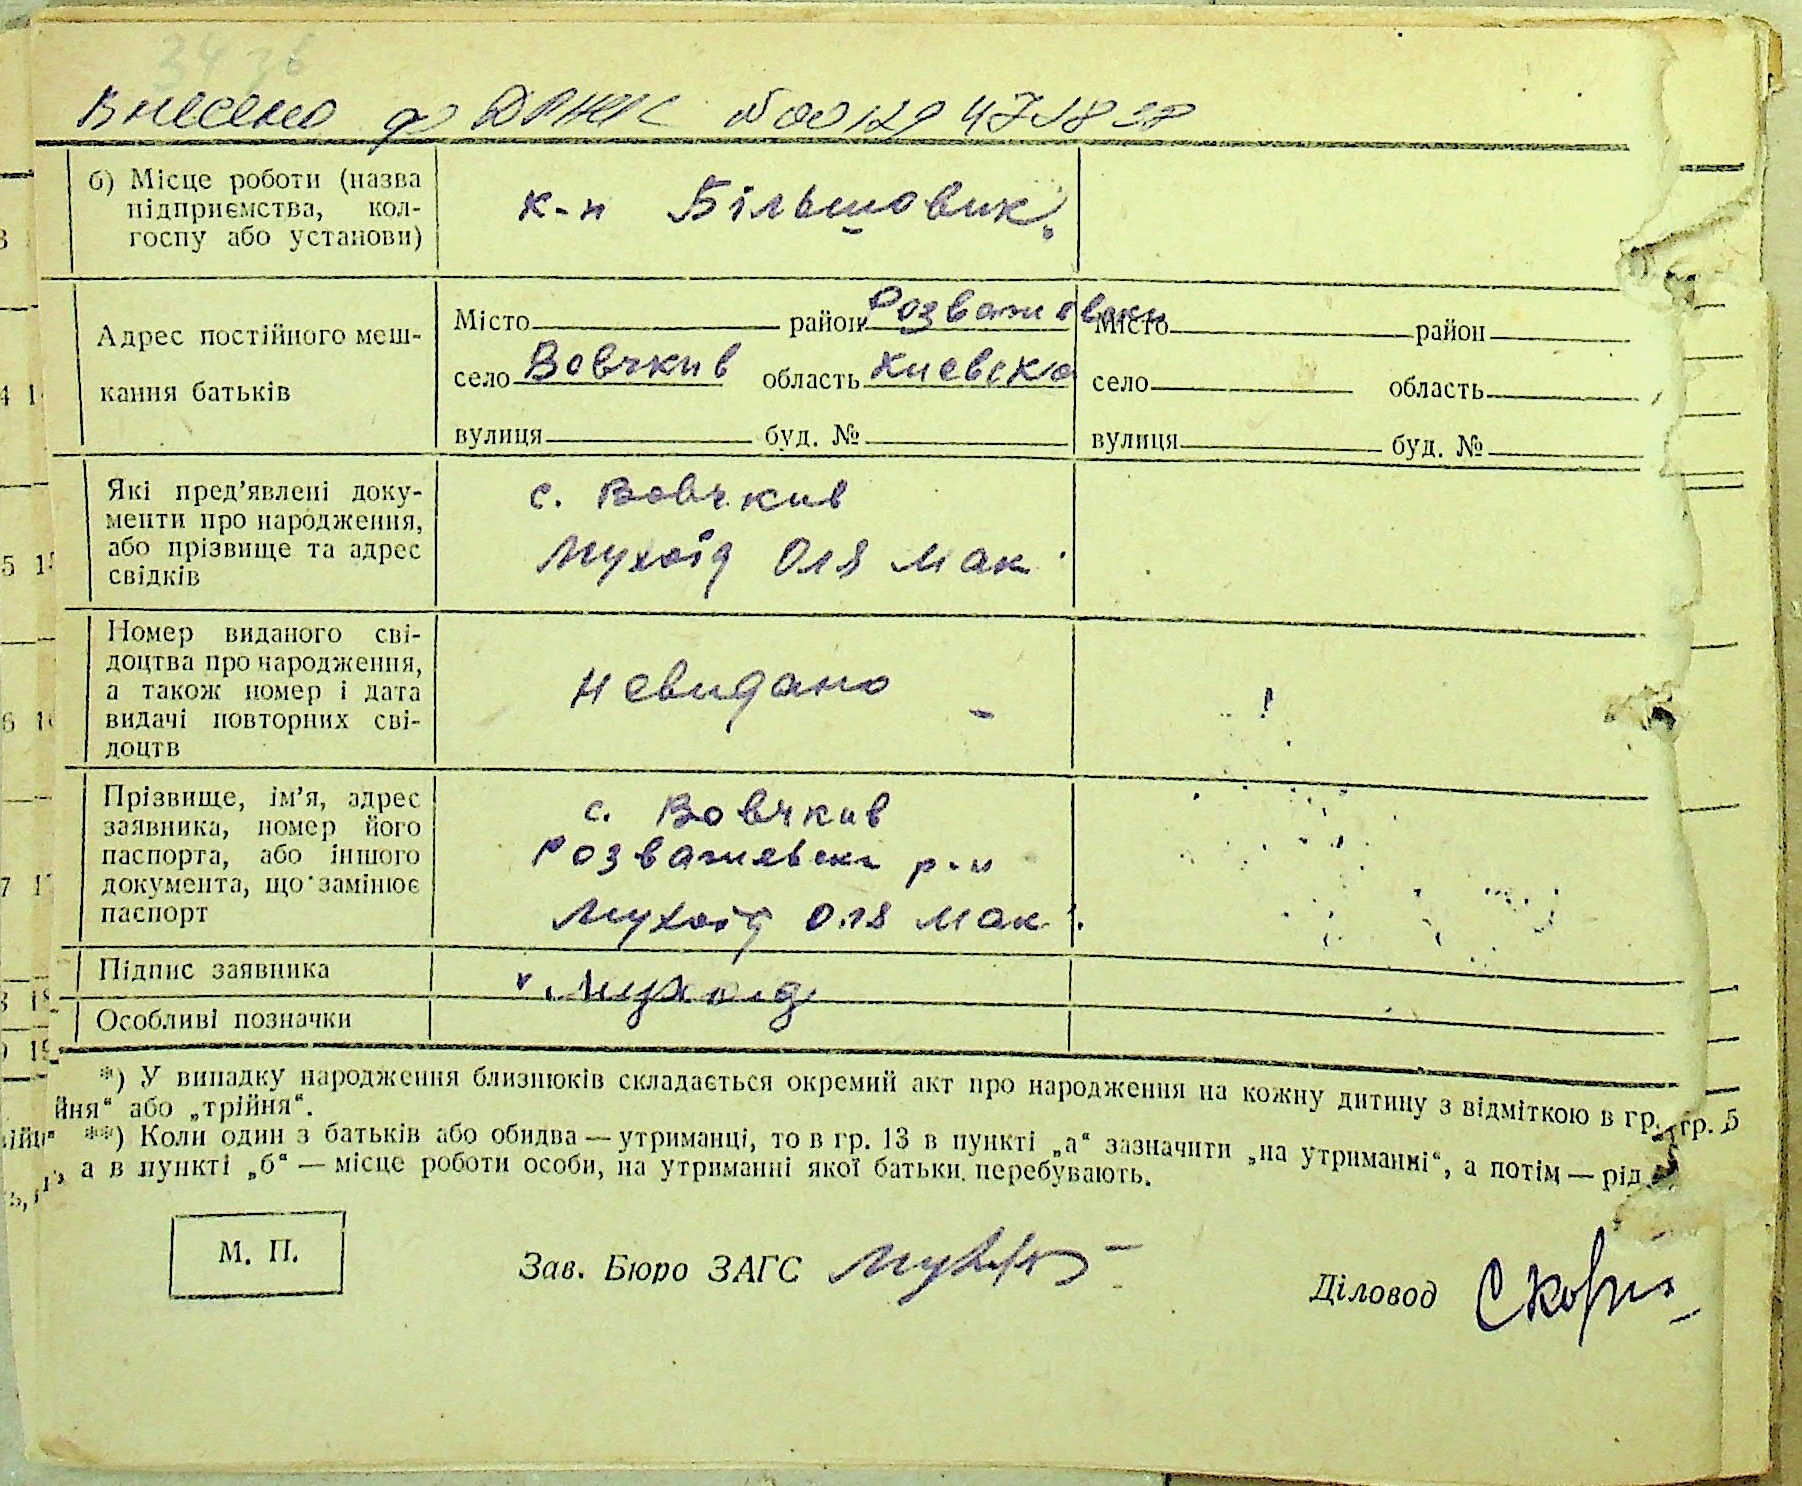 34 36
Внесено до ДРАЦС № 00129471838
б) Місце роботи (назва
підприємства, кол-
госпу або установи)
к-п Більшовик
Адрес постійного меш-
кання батьків
Місто район Розважевськи
село Вовчкив область Киевска
вулиця буд. №
Місто район
село область
вулиця буд. №
Які пред'явлені доку-
менти про народження,
або прізвище та адрес
свідків
с. Вовчкив
Мухоїд Оля Мак.
Номер виданого сві-
доцтва про народження,
а також номер і дата
видачі повторних сві-
доцтв
невидано -
Прізвище, ім'я, адрес
заявника, номер його
паспорта, або іншого
документа, що замінює
паспорт
с. Вовчкив
Розважевськ р-н
Мухоїд Оля Мак.
Підпис заявника
Мухоид
Особливі позначки
*) У випадку народження близнюків складається окремий акт про народження на кожну дитину з відміткою в гр. гр. 5
йня“ або „трійня“.
**) Коли один з батьків або обидва — утриманці, то в гр. 13 в пункті „а“ зазначити „на утриманні“, а потім — рід
а в пункті „б“ — місце роботи особи, на утриманні якої батьки перебувають.
М. П.
Зав. Бюро ЗАГС
Діловод